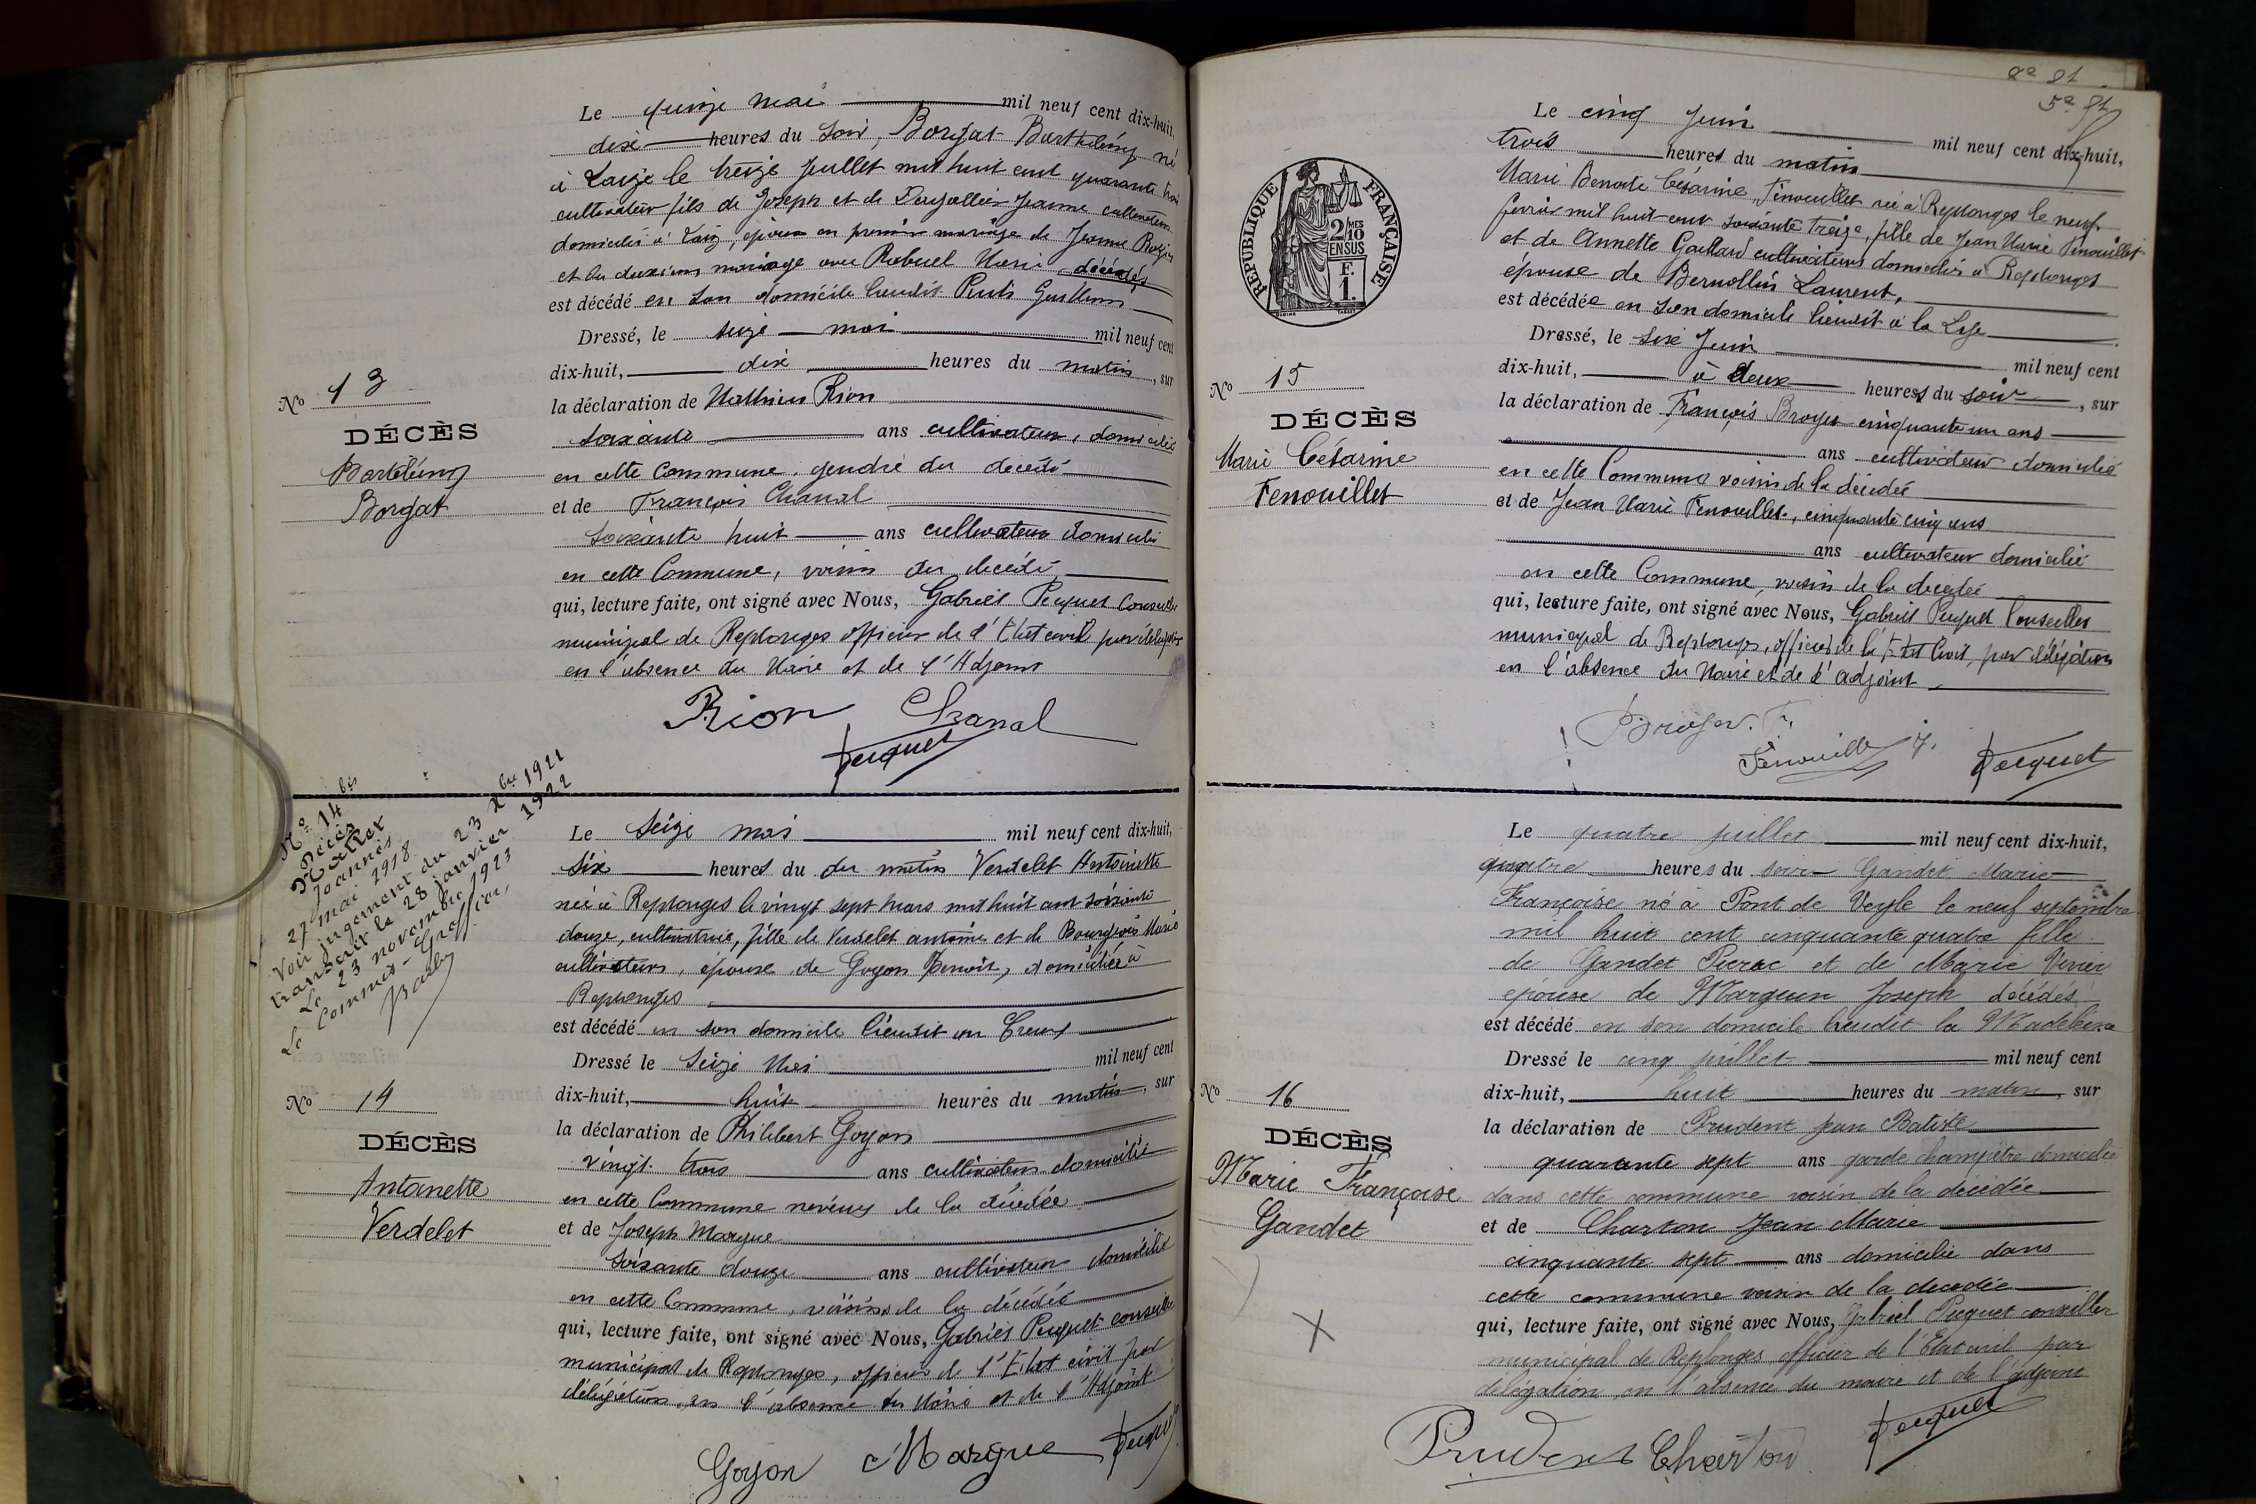 Le quinze mai mil neuf cent dix-huit,
dix heures du soir, Borgat Barthélémy né
à Laiz le treize juillet mil huit cent quarante trois
cultivateur fils de Joseph et de Jeanne cultivateurs
domiciliés à Laiz, époux en premier mariage de Jeanne
et en deuxième mariage avec Rebuel Marie, décédés
est décédé en son domicile lieudit Puits Guillemin
Dressé, le seize mai mil neuf cent
dix-huit, dix heures du matin, sur
la déclaration de Mathieu Rion
soixante ans cultivateur, domicilié
en cette commune, gendre du décédé
et de François Chanal
soixante huit ans cultivateur domicilié
en cette Commune, voisin du décédé
qui, lecture faite, ont signé avec Nous, Gabriel Pecquet Conseiller
municipal de Replonges officier de l'Etat civil par délégation
en l'absence du Maire et de l'Adjoint
Rion Chanal
Pecquet
No 13
DÉCÈS
Bartélémy
Borgat
No 14 bis
Décès
Mallet
Joannès
27 mai 1918.
Voir jugement du 23 Xbre 1921
transcrit le 28 janvier 1922
Le 23 novembre 1923
Le Commis-Greffier,
Le Seize mai mil neuf cent dix-huit,
six heures du du matin Verdelet Antoinette
née à Replonges le vingt sept mars mil huit cent soixante
douze, cultivatrice, fille de Verdelet antoine et de Bourgeois Marie
cultivateurs, épouse de Goyon Benoit, domiciliée à
Replonges
est décédé en son domicile lieudit au Creux
Dressé le Seize Mai mil neuf cent
dix-huit, huit heures du matin, sur
la déclaration de Philibert Goyon
vingt trois ans cultivateur domicilié
en cette Commune neveu de la décédée
et de Joseph Margue
soixante douze ans cultivateur domicilié
en cette Commune, voisin de la décédée
qui, lecture faite, ont signé avec Nous, Gabriel Pecquet conseiller
municipal de Replonges, officier de l'Etat civil par
délégation, en l'absence du Maire et de l'Adjoint
Goyon Margue Pecquet
No 14
DÉCÈS
Antoinette
Verdelet
Le cinq Juin mil neuf cent dix-huit,
trois heures du matin
Marie Benoite Césarine Fenouillet née à Replonges le neuf
février mil huit cent soixante treize, fille de Jean Marie Fenouillet
et de Annette Gaillard cultivateurs domiciliés à Replonges
épouse de Bernollin Laurent,
est décédée en son domicile lieudit à la
Dressé, le six Juin mil neuf cent
dix-huit, à deux heures du soir, sur
la déclaration de François Broyer cinquante un ans
ans cultivateur domicilié
en cette Commune voisin de la décédée
et de Jean Marie Fenouillet, cinquante cinq ans
ans cultivateur domicilié
en cette Commune, voisin de la décédée
qui, lecture faite, ont signé avec Nous, Gabriel Pecquet Conseiller
municipal de Replonges, officier de l'Etat Civil, par délégation
en l'absence du Maire et de l'adjoint
Broyer. F. Fenouillet J. Pecquet
RÉPUBLIQUE FRANÇAISE
2/10 MES
EN SUS
F.
1.
No 15
DÉCÈS
Marie Césarine
Fenouillet
Le quatre juillet mil neuf cent dix-huit,
quatre heures du soir Gandet Marie
Françoise né à Pont de Veyle le neuf septembre
mil huit cent cinquante quatre fille
de Gandet Pierre et de Marie
épouse de Marguin Joseph décédés
est décédé en son domicile lieudit la Madeleine
Dressé le cinq juillet mil neuf cent
dix-huit, huit heures du matin, sur
la déclaration de Prudent Jean Batiste
quarante sept ans garde champêtre domicilié
dans cette commune voisin de la décédée
et de Charton Jean Marie
cinquante sept ans domicilié dans
cette commune voisin de la décédée
qui, lecture faite, ont signé avec Nous, Gabriel Pecquet conseiller
municipal de Replonges officier de l'Etat civil par
délégation en l'absence du maire et de l'adjoint
Prudent Charton Pecquet
No 16
DÉCÈS
Marie Françoise
Gandet